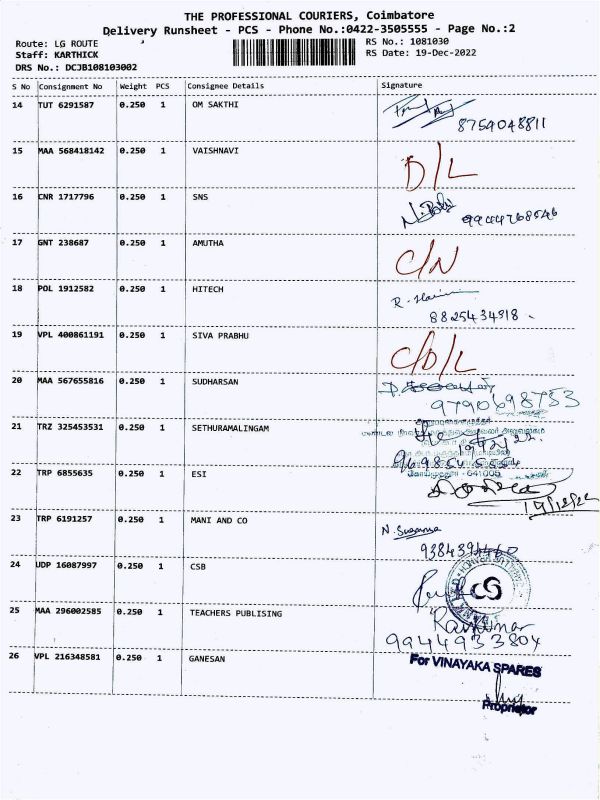 THE PROFESSIONAL COURIERS, Coimbatore
Delivery Runsheet - PCS - Phone No.:0422-3505555 - Page No.:2
Route: LG ROUTE
Staff: KARTHICK
DRS No.: DCJB108103002
RS No.: 1081030
RS Date: 19-Dec-2022
S No Consignment No Weight PCS Consignee Details Signature
14 TUT 6291587 0.250 1 OM SAKTHI
8754048811
15 MAA 568418142 0.250 1 VAISHNAVI D/L
16 CNR 1717796 0.250 1 SNS
9944768546
17 GNT 238687 0.250 1 AMUTHA C/N
18 POL 1912582 0.250 1 HITECH
8825434918
19 VPL 400861191 0.250 1 SIVA PRABHU C/D/L
20 MAA 567655816 0.250 1 SUDHARSAN
9790698753
21 TRZ 325453531 0.250 1 SETHURAMALINGAM
22 TRP 6855635 0.250 1 ESI
19/12/22
23 TRP 6191257 0.250 1 MANI AND CO
24 UDP 16087997 0.250 1 CSB
25 MAA 296002585 0.250 1 TEACHERS PUBLISING
9944933804
26 VPL 216348581 0.250 1 GANESAN For VINAYAKA SPARES
Proprietor